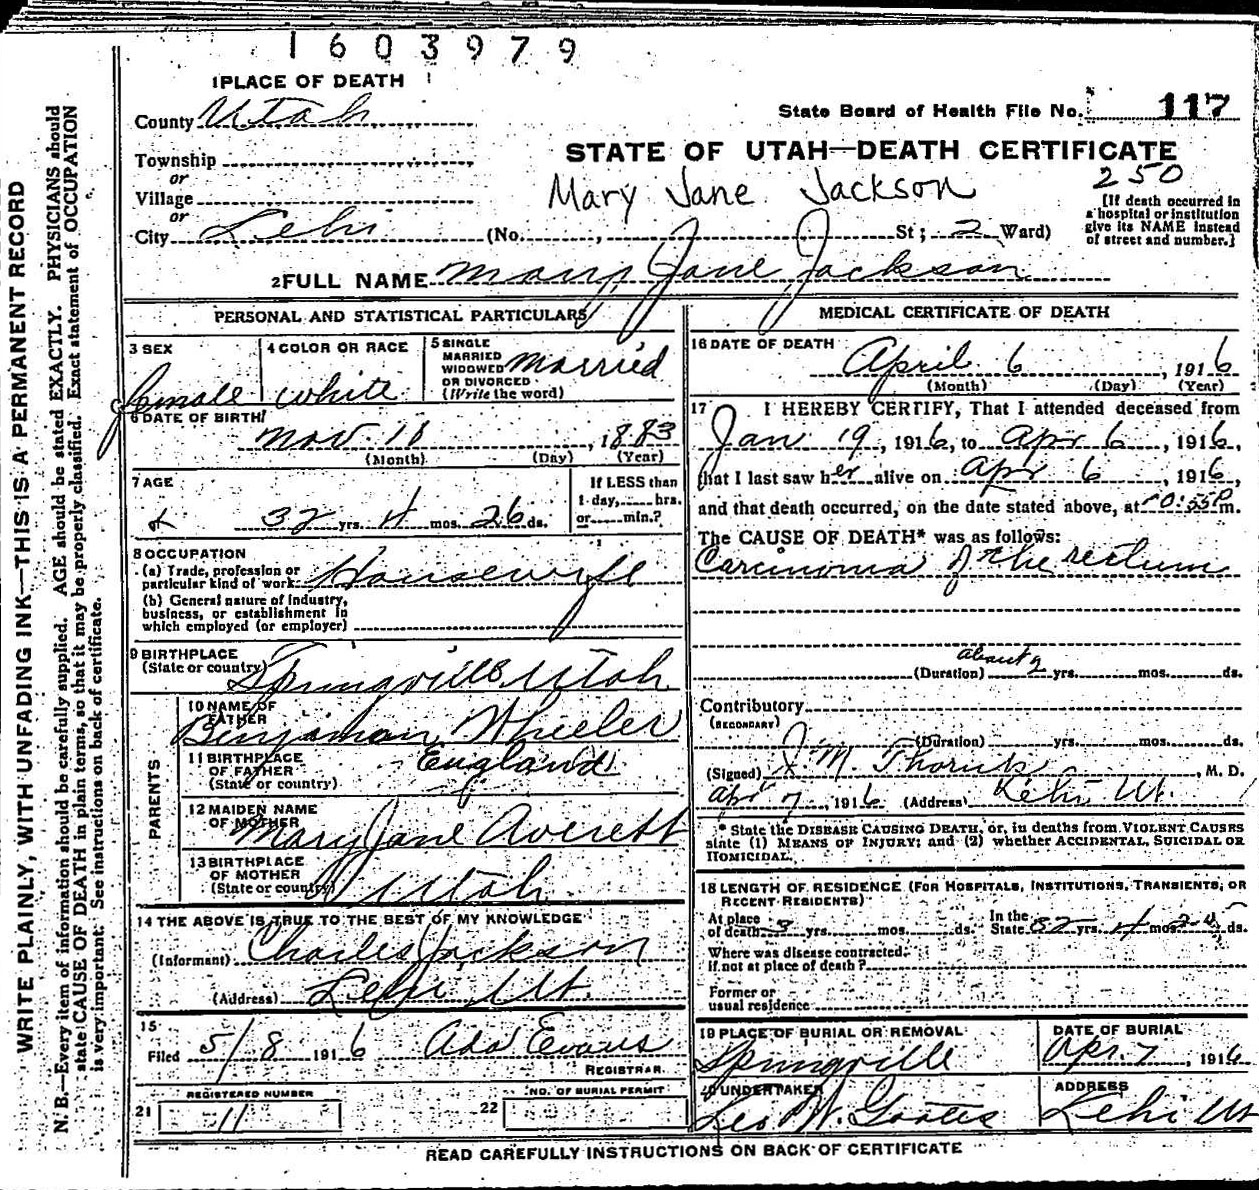 1603979
1 PLACE OF DEATH
County Utah
State Board of Health File No. 117
Township
or
Village
or
City Lehi (No. , St; 2 Ward)
STATE OF UTAH—DEATH CERTIFICATE
Mary Jane Jackson
250
[If death occurred in
a hospital or institution
give its NAME instead
of street and number.]
2 FULL NAME Mary Jane Jackson
WRITE PLAINLY, WITH UNFADING INK—THIS IS A PERMANENT RECORD
N. B.—Every item of information should be carefully supplied. AGE should be stated EXACTLY. PHYSICIANS should
state CAUSE OF DEATH in plain terms, so that it may be properly classified. Exact statement of OCCUPATION
is very important. See instructions on back of certificate.
PERSONAL AND STATISTICAL PARTICULARS
3 SEX
female
4 COLOR OR RACE
white
5 SINGLE
MARRIED
WIDOWED
OR DIVORCED
(Write the word)
married
6 DATE OF BIRTH
Nov. , 1883
(Month) (Day) (Year)
7 AGE
32 yrs. 4 mos. 26 ds.
If LESS than
1 day, hrs.
or min.?
8 OCCUPATION
(a) Trade, profession or
particular kind of work Housewife
(b) General nature of industry,
business, or establishment in
which employed (or employer)
9 BIRTHPLACE
(State or country)
Springville Utah
PARENTS
10 NAME OF
FATHER
Benjaman Wheeler
11 BIRTHPLACE
OF FATHER
(State or country)
England
12 MAIDEN NAME
OF MOTHER
Mary Jane Averett
13 BIRTHPLACE
OF MOTHER
(State or country)
Utah
14 THE ABOVE IS TRUE TO THE BEST OF MY KNOWLEDGE
(Informant) Charles Jackson
(Address) Lehi Ut.
15
Filed 5/8 1916 Ada Evans
REGISTRAR
REGISTERED NUMBER
21 11
NO. OF BURIAL PERMIT
22
MEDICAL CERTIFICATE OF DEATH
16 DATE OF DEATH
April 6, 1916
(Month) (Day) (Year)
17 I HEREBY CERTIFY, That I attended deceased from
Jan 19, 1916, to Apr 6, 1916,
that I last saw her alive on Apr 6, 1916,
and that death occurred, on the date stated above, at 10:55P m.
The CAUSE OF DEATH* was as follows:
Carcinoma of the rectum
(Duration) about 2 yrs. mos. ds.
Contributory
(SECONDARY)
(Duration) yrs. mos. ds.
(Signed) J. M. , M. D.
Apr 7, 1916 (Address) Lehi Ut.
* State the DISEASE CAUSING DEATH, or, in deaths from VIOLENT CAUSES
state (1) MEANS OF INJURY; and (2) whether ACCIDENTAL, SUICIDAL OR
HOMICIDAL.
18 LENGTH OF RESIDENCE (FOR HOSPITALS, INSTITUTIONS, TRANSIENTS, OR
RECENT RESIDENTS)
At place
of death 3 yrs. mos. ds. In the
State 32 yrs. 4 mos. ds.
Where was disease contracted,
if not at place of death?
Former or
usual residence
19 PLACE OF BURIAL OR REMOVAL
Springville
DATE OF BURIAL
Apr. 7, 1916
20 UNDERTAKER
Leo W. Goates
ADDRESS
Lehi Ut
READ CAREFULLY INSTRUCTIONS ON BACK OF CERTIFICATE